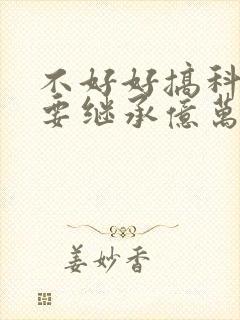 不好好搞科
要继承億萬
姜妙香